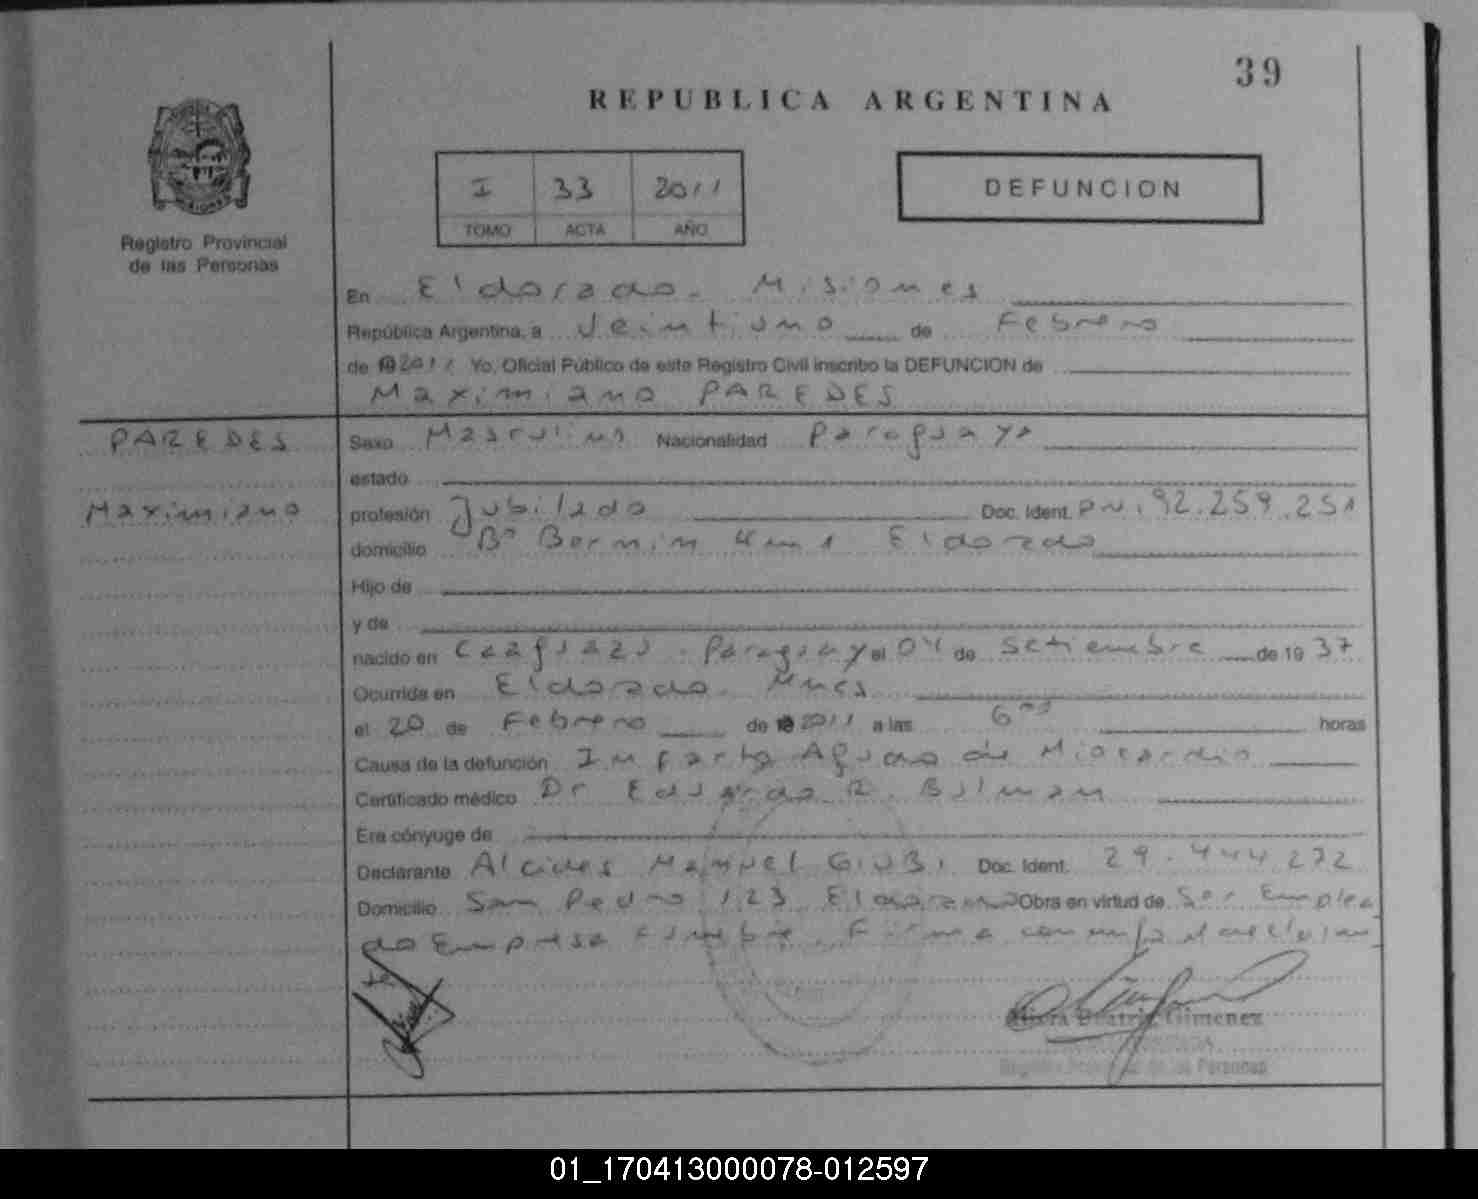 39
REPUBLICA ARGENTINA
I 33 2011
TOMO ACTA AÑO
DEFUNCION
Registro Provincial
de las Personas
En Eldorado. Misiones
República Argentina, a Veintiuno de Febrero
de 2011 Yo, Oficial Público de este Registro Civil inscribo la DEFUNCION de
Maximiano PAREDES
PAREDES
Maximiano
Sexo Masculino Nacionalidad Paraguaya
estado
profesión Jubilado Doc. Ident. DNI. 92.259.251
domicilio Bº Bernin Km 1 Eldorado
Hijo de
y de
nacido en Caaguazu. Paraguay el 04 de Setiembre de 1937
Ocurrida en Eldorado. Mnes
el 20 de Febrero de 2011 a las 6 horas
Causa de la defunción Infarto Agudo de Miocardio
Certificado médico Dr Eduardo R. Bulman
Era cónyuge de
Declarante Alcides Manuel GIUBI Doc. Ident. 29.444.272
Domicilio San Pedro 123 Eldorado Obra en virtud de Ser Emplea
do Empresa Funebre. Firma conmigo el declaran
te
Beatriz Gimenez
Registro Provincial de las Personas
01_170413000078-012597